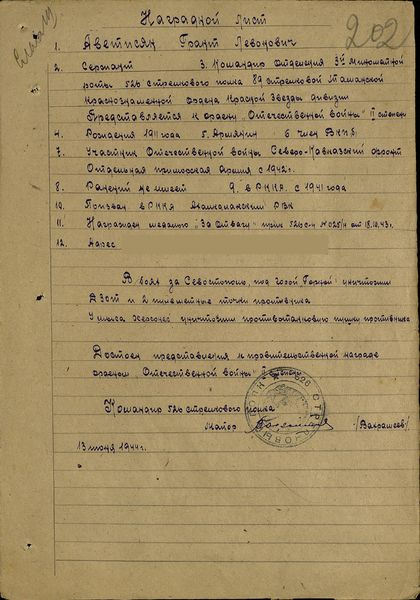 202
Наградной Лист
1. Аветисян Грант Левонович
2. Сержант 3. Командир отделения 3й минометной
роты 526 стрелкового полка 89 стрелковой Таманской
Краснознаменной ордена Красной Звезды дивизии
Представляется к ордену "Отечественной войны" II степени
4. Рождения 1911 года 5. Армянин 6 член ВКПб.
7. Участник Отечественной войны Северо-Кавказский фронт
Отдельная приморская Армия с 1942 г.
8. Ранений не имеет 9. в РККА с 1941 года
10. Призван в РККА Ахалкалакским РВК
11. Награжден медалью "За Отвагу" прик 526 с.п №025/н от 18.10.43 г.
12. Адрес
В боях за Севастополь, под горой Горной уничтожил
ДЗОТ и 2 пулеметные точки противника
У мыса Херсонес уничтожил противотанковую пушку противника
Достоен представления к правительственной награде
орденом "Отечественной войны" II степени
Командир 526 стрелкового полка
Майор /Вахрашеев/
13 июня 1944 г.